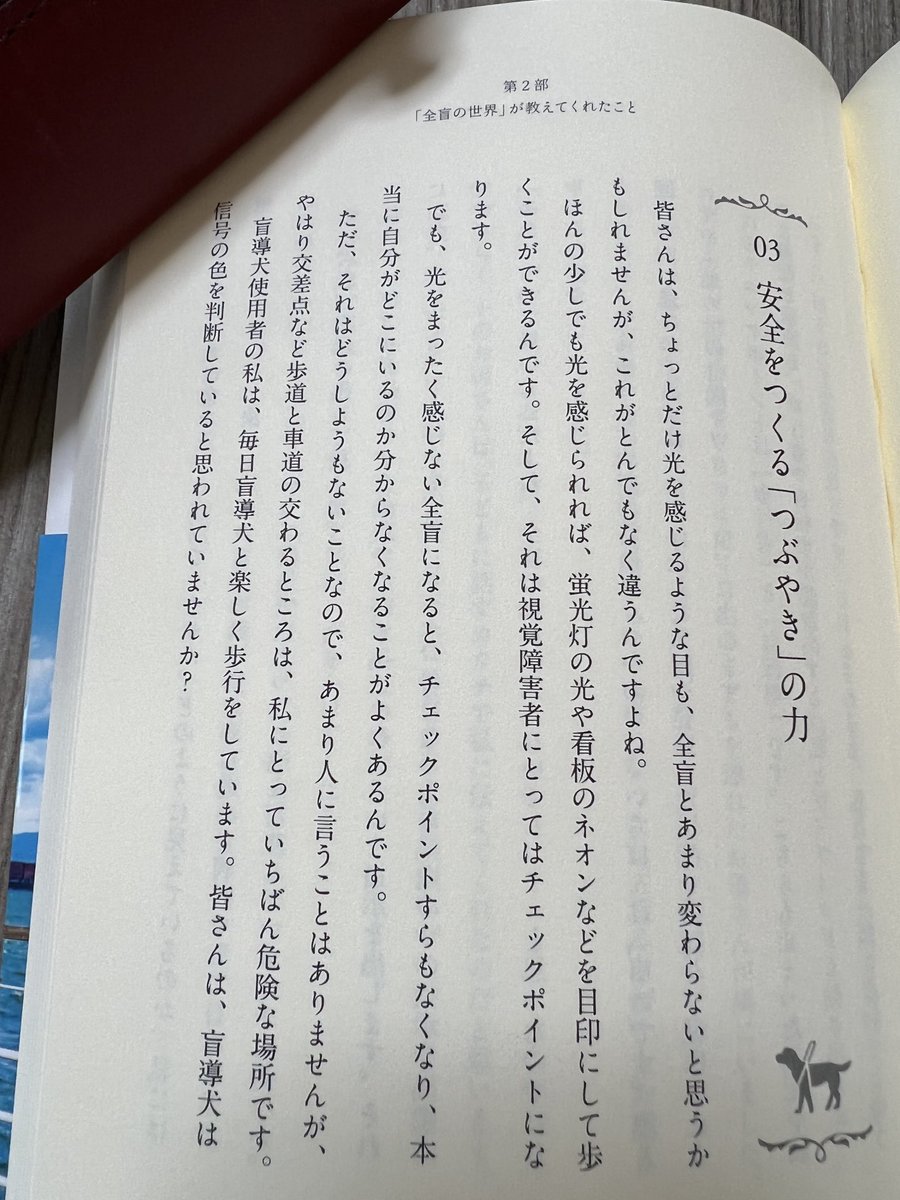 第2部
「全盲の世界」が教えてくれたこと
03 安全をつくる「つぶやき」の力
皆さんは、ちょっとだけ光を感じるような目も、全盲とあまり変わらないと思うか
もしれませんが、これがとんでもなく違うんですよね。
ほんの少しでも光を感じられれば、蛍光灯の光や看板のネオンなどを目印にして歩
くことができるんです。そして、それは視覚障害者にとってはチェックポイントにな
ります。
でも、光をまったく感じない全盲になると、チェックポイントすらもなくなり、本
当に自分がどこにいるのか分からなくなることがよくあるんです。
ただ、それはどうしようもないことなので、あまり人に言うことはありませんが、
やはり交差点など歩道と車道の交わるところは、私にとっていちばん危険な場所です。
盲導犬使用者の私は、毎日盲導犬と楽しく歩行をしています。皆さんは、盲導犬は
信号の色を判断していると思われていませんか？